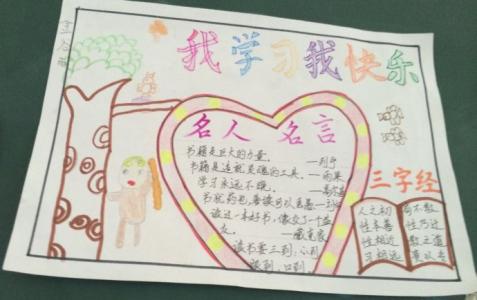 我学习我快乐
名人 名言
书籍是巨大的力量。 ——列宁
书籍是造就灵魂的工具。——雨果
学习永远不晚。 ——高尔基
书犹药也,善读可以医愚——刘向
读过一本好书,像交了一个益
友。 ——臧克家
读书要三到:心到
眼到,口到。
三字经
人之初
性本善
性相近
习相远
苟不教
性乃迁
教之道
贵以专